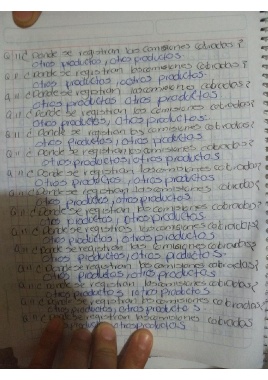 a 11 ¿Donde se registran las comisiones cobradas?
otros productos, otros productos
a 11 ¿Donde se registran las comisiones cobradas?
otros productos, otros productos
a 11 ¿Donde se registran las comisiones cobradas?
otros productos, otros productos
a 11 ¿Donde se registran las comisiones cobradas?
otros productos, otros productos.
a 11 ¿Donde se registran las comisiones cobradas?
otros productos, otros productos
a 11 ¿Donde se registran las comisiones cobradas?
otros productos, otros productos
a 11 ¿Donde se registran las comisiones cobradas?
otros productos, otros productos
a 11 ¿Donde se registran las comisiones cobradas?
otros productos, otros productos
a 11 ¿Donde se registran las comisiones cobradas?
otros productos, otros productos
a 11 ¿Donde se registran las comisiones cobradas?
otros productos, otros productos
a 11 ¿Donde se registran las comisiones cobradas
otros productos, otros productos
a 11 ¿Donde se registran las comisiones cobradas?
otros productos, otros productos
a 11 ¿Donde se registran las comisiones cobradas?
otros productos, otros productos
a 11 ¿Donde se registran las comisiones cobradas?
otros productos, otros productos
a 11 ¿Donde se registran las comisiones cobradas
productos, otros productos